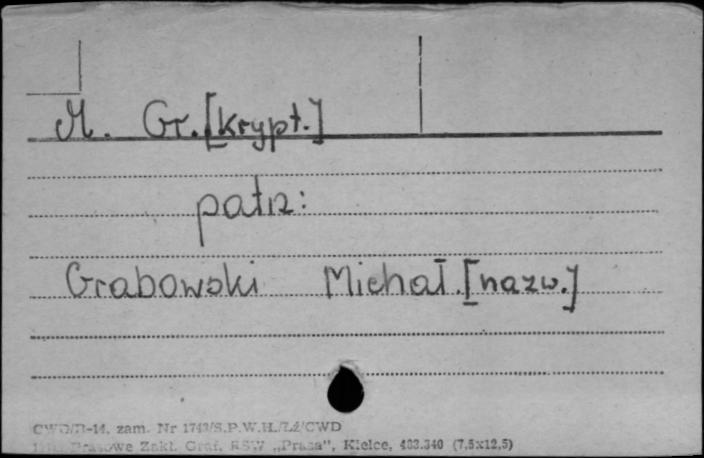 M. Gr. [krypt.]
patrz:
Grabowski Michał. [nazw.]
CWD/D-14, zam. Nr 1743/S.P.W.H./Lż/CWD
Prasowe Zakł. Graf. RSW „Prasa", Kielce, 403.340 (7,5x12,5)